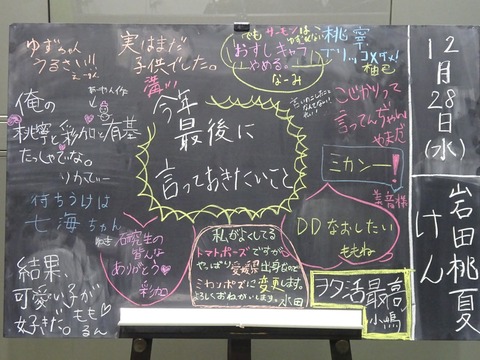 12月28日(水)
岩田桃夏
けん
今年
最後に
言っておきたいこと
ゆずちゃん
うるさい!!!
実はまだ
子供でした。
でもサーモンは
おすしキャラ
やめる。
なーみ
桃寧
ブリッコダメ!
柚巴
こじかりって
言ってんだろ
やまだ
ミカンー!
美音様
DDなおしたい
ももね
ヲタ活最高
小嶋
私がよくしてる
トマトポーズですが
やっぱり愛媛県出身なので
みかんポーズに変更します。
よろしくおねがいします。
水田
研究生の
皆んな
ありがとう
彩加
俺の
桃寧と彩加と有基
たっしゃでな。
りかてぃー
待ちうけは
七海ちゃん
結果、
可愛い子が
好きだ。
ももるん